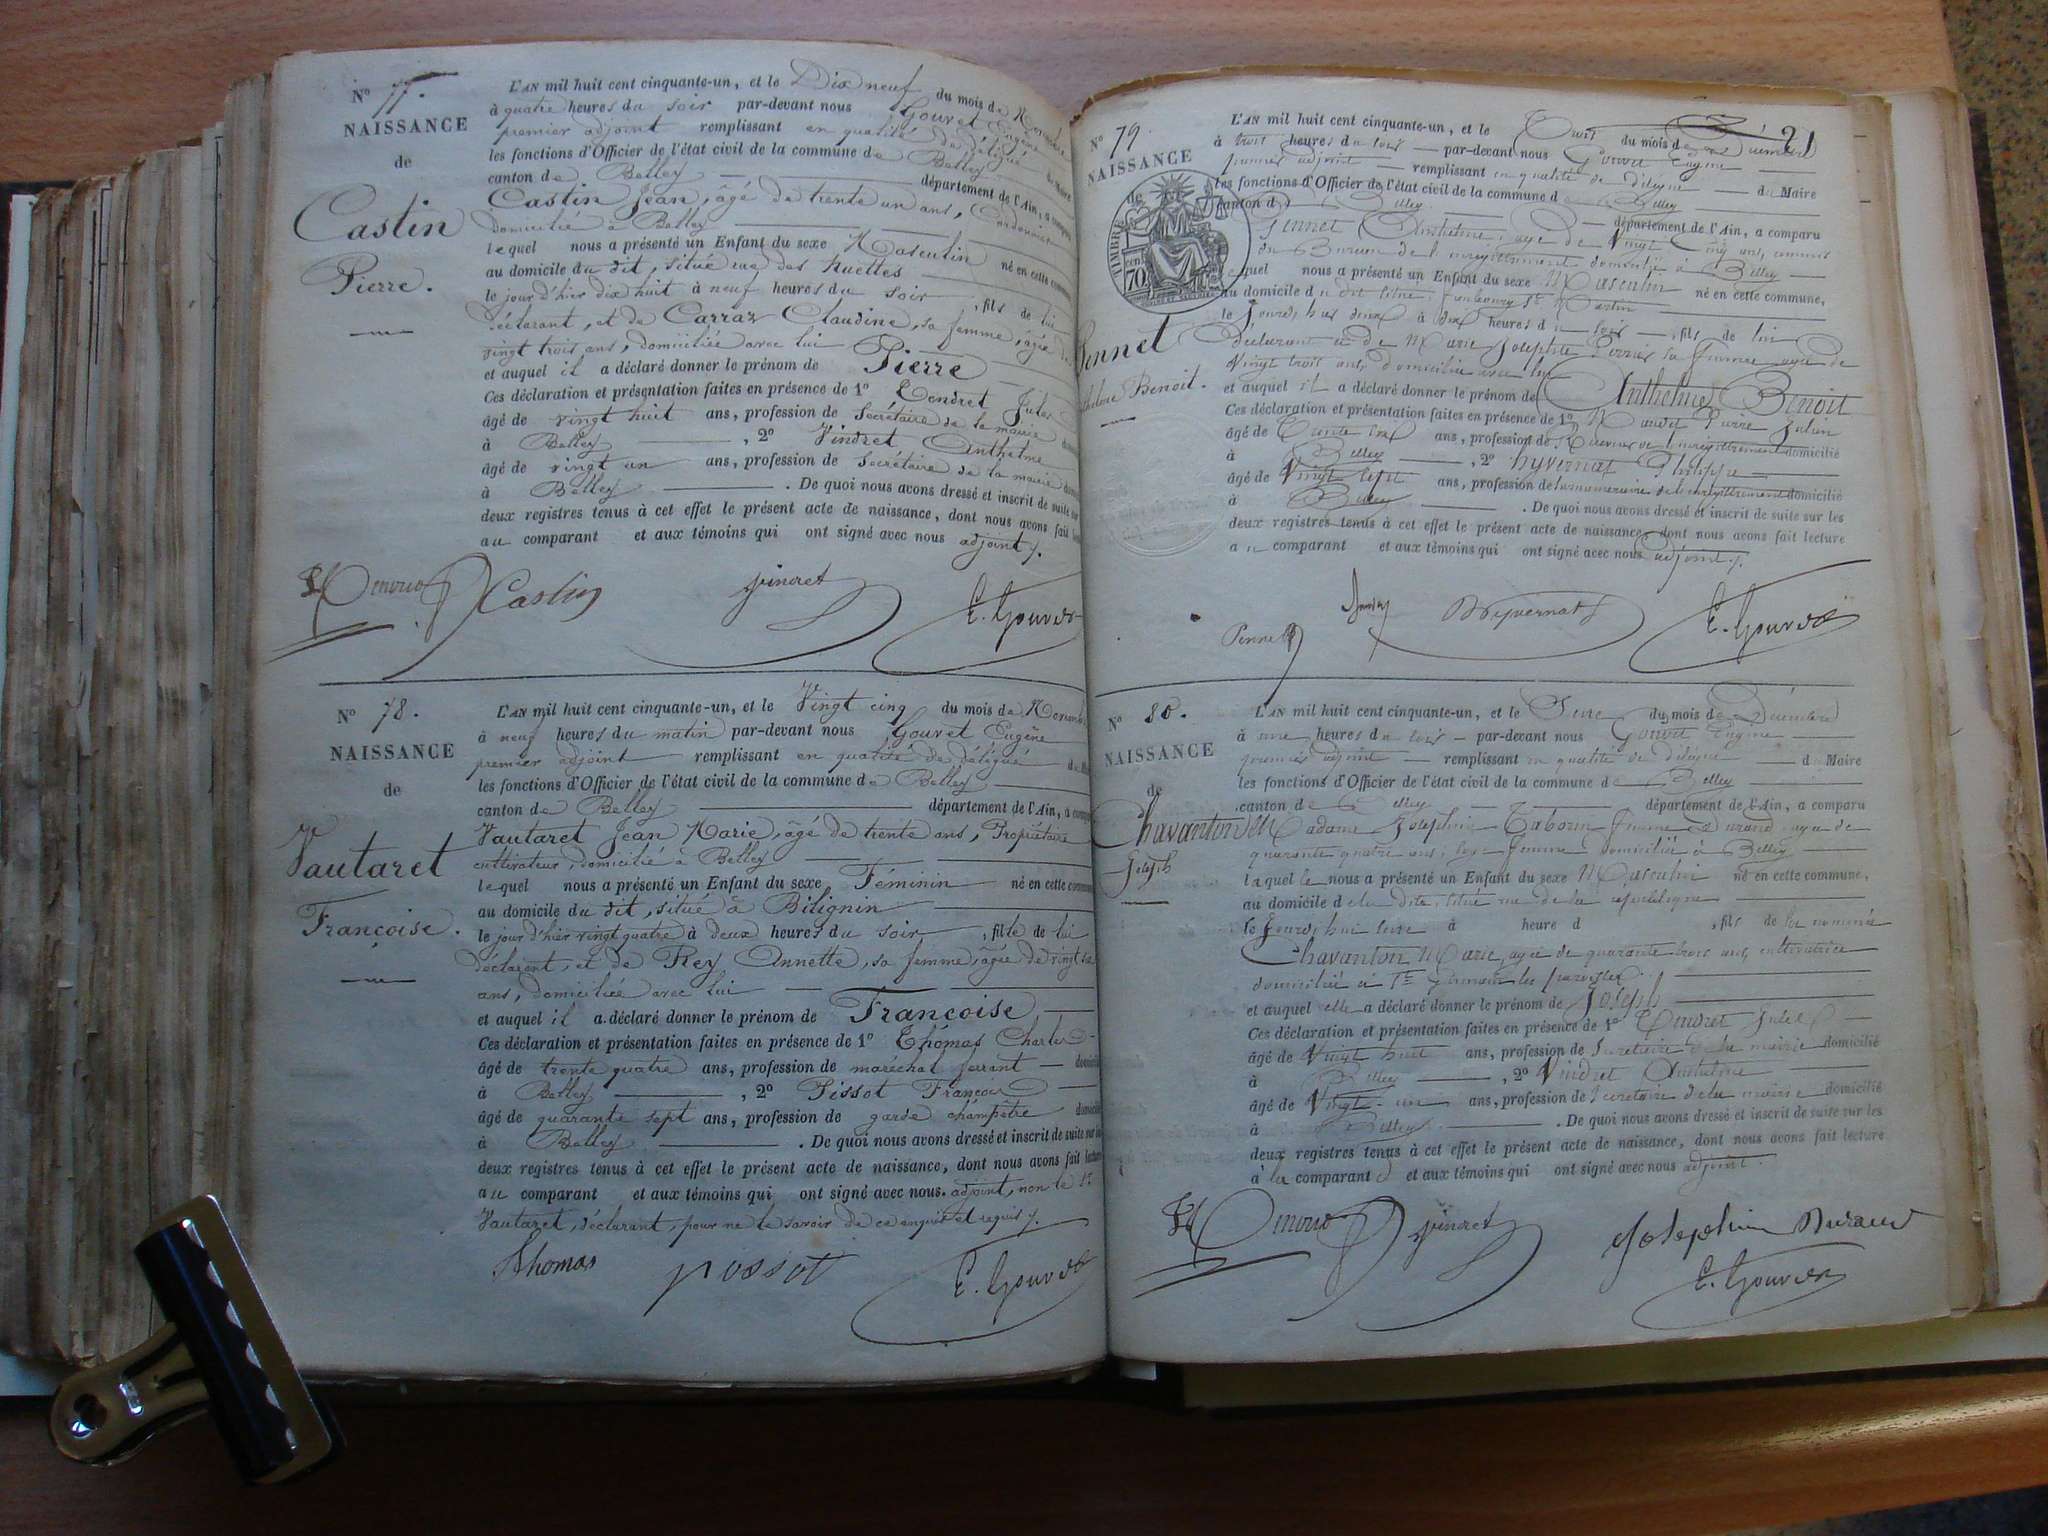 N° 77.
NAISSANCE
de
Castin
Pierre.
L'AN mil huit cent cinquante-un, et le Dix neuf du mois de Novembre
à quatre heures du soir par-devant nous Gouvet Eugène
premier adjoint remplissant en qualité de délégué du Maire
les fonctions d'Officier de l'état civil de la commune de Belley
canton de Belley département de l'Ain, a comparu
Castin Jean, âgé de trente un ans, Cordonnier
domicilié à Belley
lequel nous a présenté un Enfant du sexe Masculin né en cette commune
au domicile du dit, situé rue des huelles
le jour d'hier dix huit à neuf heures du soir, fils de lui
déclarant, et de Carraz Claudine, sa femme, âgée de
vingt trois ans, domiciliée avec lui
et auquel il a déclaré donner le prénom de Pierre
Ces déclaration et présentation faites en présence de 1° Tendret Jules
âgé de vingt huit ans, profession de secrétaire de la mairie
à Belley, 2° Vindret Anthelme
âgé de vingt un ans, profession de secrétaire de la mairie
à Belley. De quoi nous avons dressé et inscrit de suite sur
deux registres tenus à cet effet le présent acte de naissance, dont nous avons fait
au comparant et aux témoins qui ont signé avec nous adjoint
Castin vindret
E. Gouvet
N° 78.
NAISSANCE
de
Vautaret
Françoise.
L'AN mil huit cent cinquante-un, et le Vingt cinq du mois de Novembre
à neuf heures du matin par-devant nous Gouvet Eugène
premier adjoint remplissant en qualité de délégué
les fonctions d'Officier de l'état civil de la commune de Belley
canton de Belley département de l'Ain, a comparu
Vautaret Jean Marie, âgé de trente ans, Propriétaire
cultivateur, domicilié à Belley
lequel nous a présenté un Enfant du sexe Féminin né en cette commune
au domicile du dit, situé à Bilignin
le jour d'hier vingt quatre à deux heures du soir, fille de lui
déclarant, et de Rey Annette, sa femme, âgée de vingt
ans, domiciliée avec lui
et auquel il a déclaré donner le prénom de Françoise
Ces déclaration et présentation faites en présence de 1° Thomas Charles
âgé de trente quatre ans, profession de maréchal ferrant domicilié
à Belley, 2° Pissot François
âgé de quarante sept ans, profession de garde champêtre domicilié
à Belley. De quoi nous avons dressé et inscrit de suite sur les
deux registres tenus à cet effet le présent acte de naissance, dont nous avons fait lecture
au comparant et aux témoins qui ont signé avec nous. adjoint, non le Sr
Vautaret, déclarant, pour ne le savoir de ce enquis et requis
Thomas possot
E. Gouvet
21
N° 79.
NAISSANCE
de
TIMBRE
70
Pennet
Anthelme Benoit.
L'AN mil huit cent cinquante-un, et le Trois du mois de Décembre
à trois heures du soir par-devant nous Gouvet Eugène
premier adjoint remplissant en qualité de délégué du Maire
les fonctions d'Officier de l'état civil de la commune de Belley
canton de Belley département de l'Ain, a comparu
Pennet Anthelme, âgé de Vingt Cinq ans, commis
du Bureau de l'enregistrement domicilié à Belley
lequel nous a présenté un Enfant du sexe Masculin né en cette commune,
au domicile du dit situé, faubourg St Martin
le jourd'hui deux à dix heures du soir, fils de lui
déclarant et de Marie Josephte sa femme âgée de
Vingt trois ans, domiciliée avec lui
et auquel il a déclaré donner le prénom de Anthelme Benoit
Ces déclaration et présentation faites en présence de 1° Pierre Julien
âgé de Trente ans, profession de Receveur de l'enregistrement domicilié
à Belley, 2° hyvernat Philippe
âgé de Vingt sept ans, profession de surnuméraire de l'enregistrement domicilié
à Belley. De quoi nous avons dressé et inscrit de suite sur les
deux registres tenus à cet effet le présent acte de naissance dont nous avons fait lecture
au comparant et aux témoins qui ont signé avec nous adjoint
Pennet hyvernat
E. Gouvet
N° 80.
NAISSANCE
de
Chavanton
Joseph
L'AN mil huit cent cinquante-un, et le Seize du mois de Décembre
à une heures du soir par-devant nous Gouvet Eugène
premier adjoint remplissant en qualité de délégué du Maire
les fonctions d'Officier de l'état civil de la commune de Belley
canton de Belley département de l'Ain, a comparu
Madame Joséphine Taborin femme Durand âgée de
quarante quatre ans, sage femme domiciliée à Belley
laquelle nous a présenté un Enfant du sexe Masculin né en cette commune,
au domicile de la dite, situé rue de la république
le Jourd'hui seize à heure d, fils de la nommée
Chavanton Marie, âgée de quarante trois ans, cultivatrice
domiciliée à St Germain les paroisses
et auquel elle a déclaré donner le prénom de Joseph
Ces déclaration et présentation faites en présence de 1° Tendret Jules
âgé de Vingt huit ans, profession de Secrétaire de la mairie domicilié
à Belley, 2° Vindret Anthelme
âgé de Vingt un ans, profession de Secretaire de la mairie domicilié
à Belley. De quoi nous avons dressé et inscrit de suite sur les
deux registres tenus à cet effet le présent acte de naissance, dont nous avons fait lecture
à la comparant e et aux témoins qui ont signé avec nous adjoint.
vindret Joséphine Durand
E. Gouvet